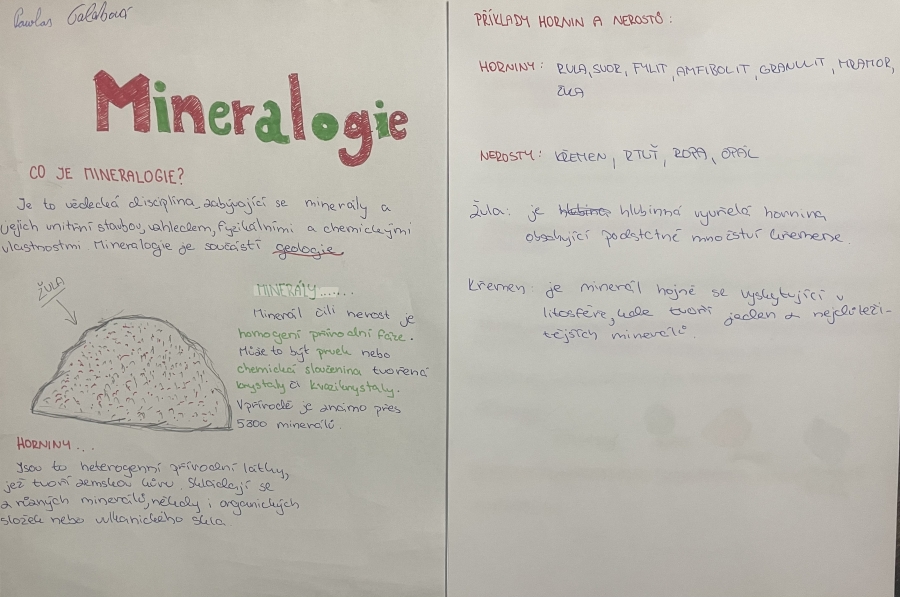 Pavlas Galabová
Mineralogie
CO JE MINERALOGIE?
Je to vědecká disciplína, zabývající se minerály a
jejich vnitřní stavbou, vzhledem, fyzikálními a chemickými
vlastnostmi. Mineralogie je součástí geologie
ŽULA
MINERÁLY.......
Minerál čili nerost je
homogení přírodní fáze.
Může to být prvek nebo
chemická sloučenina tvořená
krystaly či kvazikrystaly.
V přírodě je známo přes
5300 minerálů.
HORNINY...
Jsou to heterogenní přírodní látky,
jež tvoří zemskou kůru. Skládají se
z různých minerálů, někdy i organických
složek nebo vulkanického skla.
PŘÍKLADY HORNIN A NEROSTŮ:
HORNINY: RULA, SVOR, FYLIT, AMFIBOLIT, GRANULIT, MRAMOR,
ŽULA
NEROSTY: KŘEMEN, RTUŤ, ROPA, OPÁL
Žula: je hlubinná vyvřelá hornina
obsahující podstatné množství křemene.
Křemen: je minerál hojně se vyskytující v
litosféře, kde tvoří jeden z nejdůleži-
tějších minerálů.